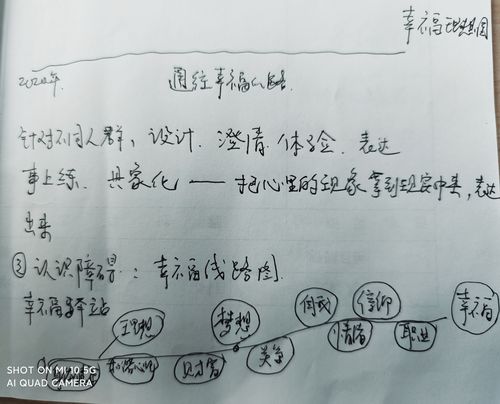 幸福理想国
2020年.
通往幸福的路.
针对不同人群、设计. 澄清. 体验. 表达
事上练. 具象化 —— 把心里的现象拿到现实中来,表达
出来
③ 认识障碍: 幸福线路图.
幸福驿站
理想 梦想 信仰 幸福
财富 关系 情绪 职业
SHOT ON MI 10 5G
AI QUAD CAMERA